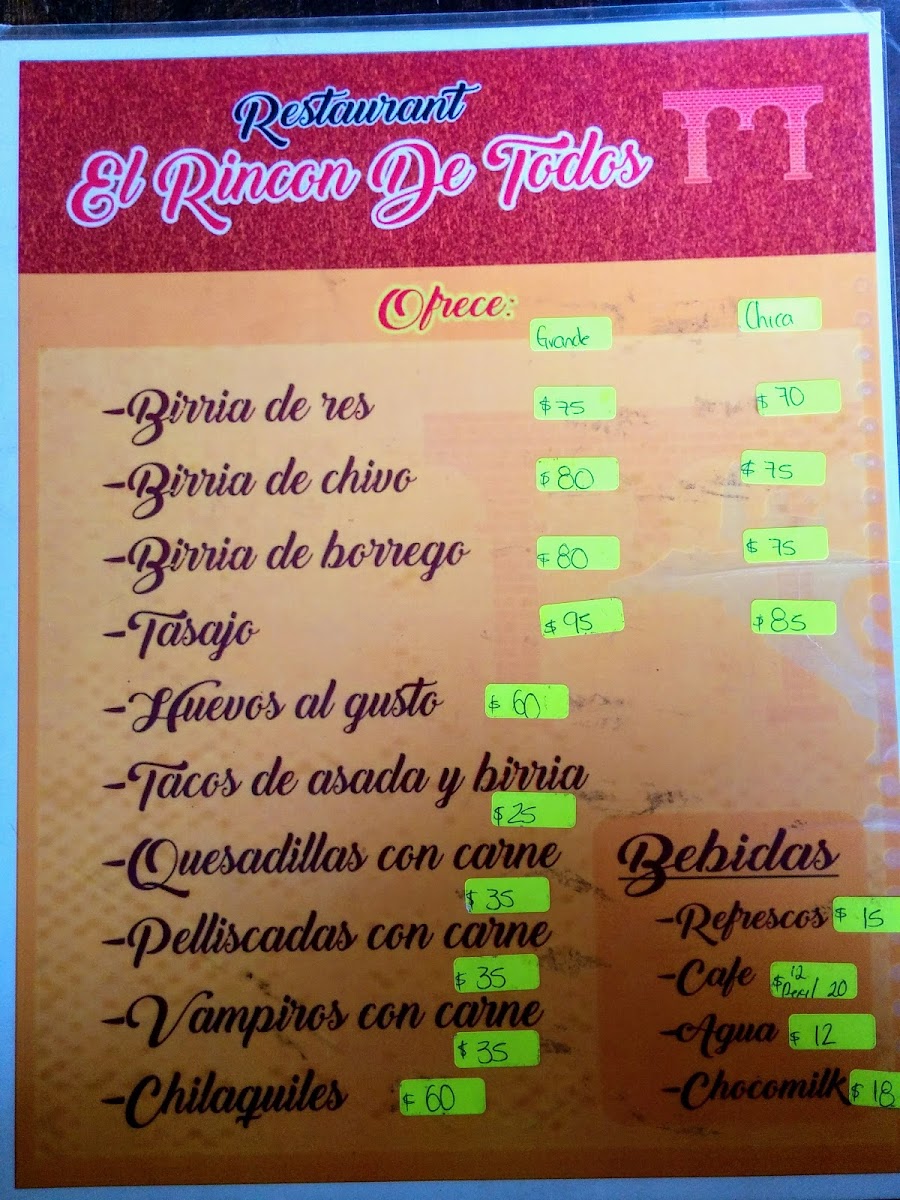 Restaurant
El Rincon De Todos
Ofrece:
Grande Chica
-Birria de res $75 $70
-Birria de chivo $80 $75
-Birria de borrego $80 $75
-Tasajo $95 $85
-Huevos al gusto $60
-Tacos de asada y birria
$25
-Quesadillas con carne
$35
-Pelliscadas con carne
$35
-Vampiros con carne
$35
-Chilaquiles $60
Bebidas
-Refrescos $15
-Cafe $12
/ 20
-Agua $12
-Chocomilk $18